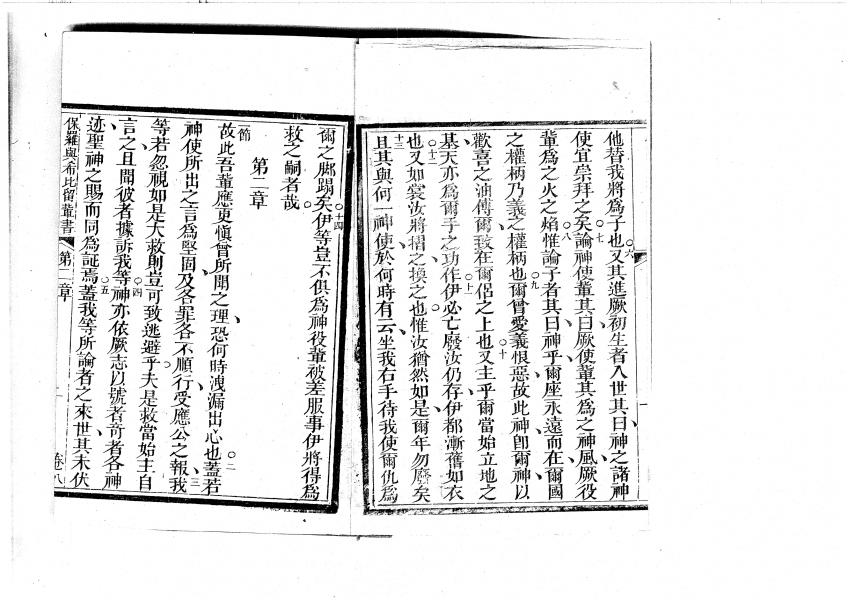 他替我將爲子也○六又其進厥初生者入世其曰神之諸神
使宜崇拜之矣○七論神使輩其曰厥使輩其爲之神風厥役
輩爲之火之焰○八惟論子者其曰神乎爾座永遠而在爾國
之權柄乃義之權柄也○九爾曾愛義恨惡故此神即爾神以
歡喜之油傅爾致在爾侶之上也○十又主乎爾當始立地之
基天亦爲爾手之功作○十一伊必亡廢汝仍存伊都漸舊如衣
也○十二又如裳汝將摺之換之也惟汝猶然如是爾年勿廢矣
十三且其與何一神使於何時有云坐我右手待我使爾仇爲
爾之腳踢矣○十四伊等豈不俱爲神役輩被差服事伊將得爲
救之嗣者哉
第二章
一節故此吾輩應更愼曾所聞之理恐何時洩漏出心也○二蓋若
神使所出之言爲堅固及各罪各不順行受應公之報○三我
等若忽視如是大救則豈可致逃避乎夫是救當始主自
言之且聞彼者據訴我等○四神亦依厥志以號者奇者各神
迹聖神之賜而同爲証焉○五蓋我等所論者之來世其未伏
保羅與希比留輩書
第二章
卷八